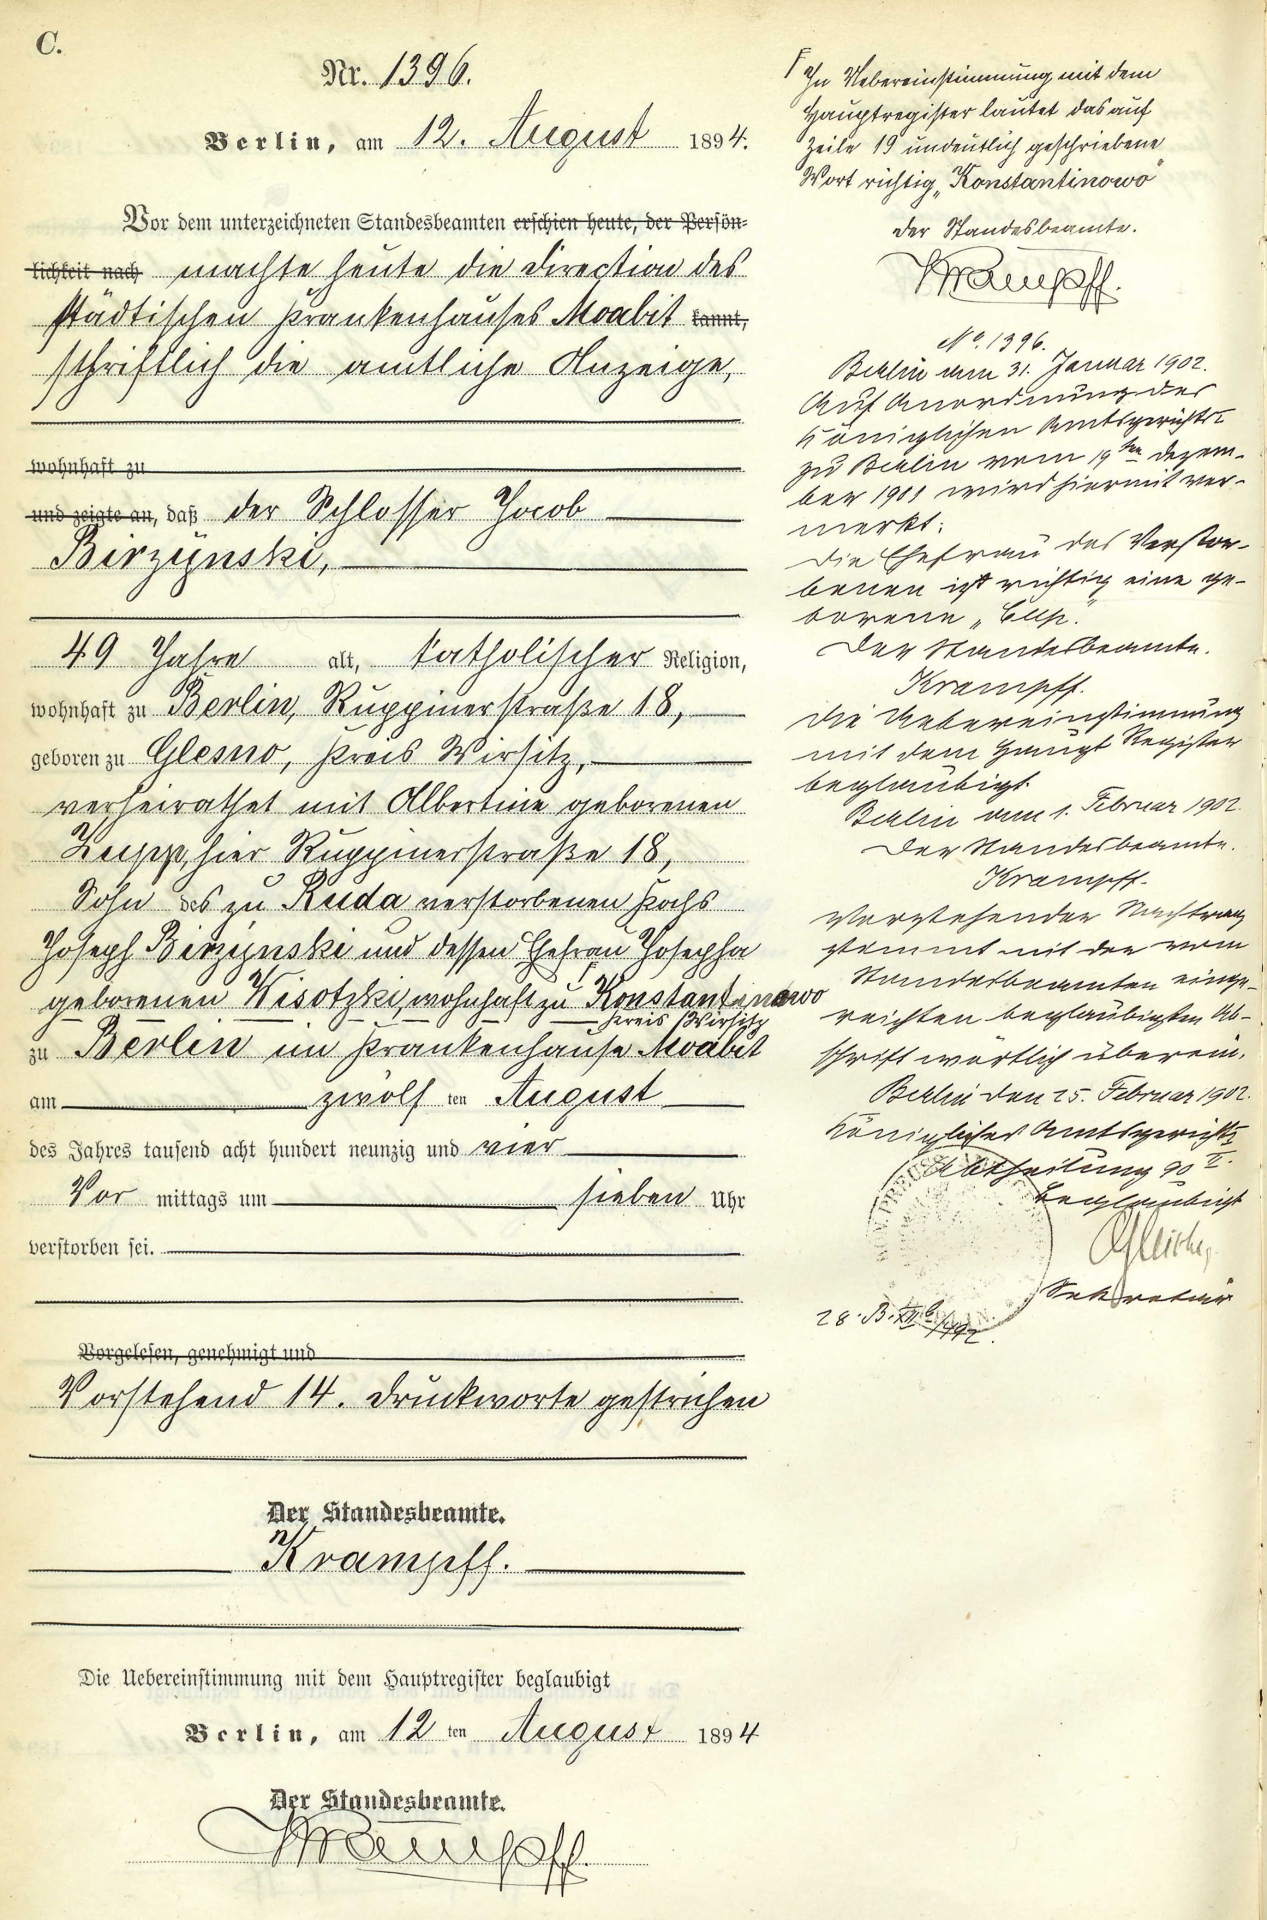 C.
Nr. 1396.
Berlin, am 12. August 1894.
Vor dem unterzeichneten Standesbeamten erschien heute, der Persön-
lichkeit nach machte heute die Direction des
städtischen Krankenhauses Moabit kannt,
schriftlich die amtliche Anzeige,
wohnhaft zu
und zeigte an, daß der Schlosser Jacob
Birzÿnski,
49 Jahre alt, katholischer Religion,
wohnhaft zu Berlin, Ruppinerstraße 18,
geboren zu Glesno, Kreis Wirsitz,
verheirathet mit Albertine geborenen
hier Ruppinerstraße 18,
Sohn des zu Ruda verstorbenen Kochs
Joseph Birzÿnski und dessen Ehefrau Josepha
geborenen Wisotzki, wohnhaft zu Konstantinowo
Kreis Wirsitz
zu Berlin im Krankenhause Moabit
am zwölf ten August
des Jahres tausend acht hundert neunzig und vier
Vor mittags um sieben Uhr
verstorben sei.
Vorgelesen, genehmigt und
Vorstehend 14. Druckworte gestrichen
Der Standesbeamte.
Krampff.
Die Uebereinstimmung mit dem Hauptregister beglaubigt
Berlin, am 12 ten August 1894
Der Standesbeamte.
Krampff.
In Uebereinstimmung mit dem
Hauptregister lautet das auf
Zeile 19 undeutlich geschriebene
Wort richtig „Konstantinowo"
Der Standesbeamte.
Krampff.
No. 1396.
Berlin am 31. Januar 1902.
Auf Anordnung des
Königlichen Amtsgerichts I
zu Berlin vom 19ten Dezem-
ber 1901 wird hiermit ver-
merkt:
Die Ehefrau des Verstor-
benen ist richtig eine ge-
borene
Der Standesbeamte.
Krampff.
Die Uebereinstimmung
mit dem Haupt Register
beglaubigt.
Berlin am 1. Februar 1902.
Der Standesbeamte.
Krampff.
Vorstehender Nachtrag
stimmt mit der vom
Standesbeamten einge-
reichten beglaubigten Ab-
schrift wörtlich überein.
Berlin den 25. Februar 1902.
Königliches Amtsgericht I
Abtheilung 90
Beglaubigt
Sekretär